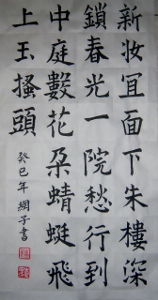 新妆冝面下朱樓深
鎖春光一院愁行到
中庭數花朵蜻蜓飛
上玉搔頭
癸巳年子書